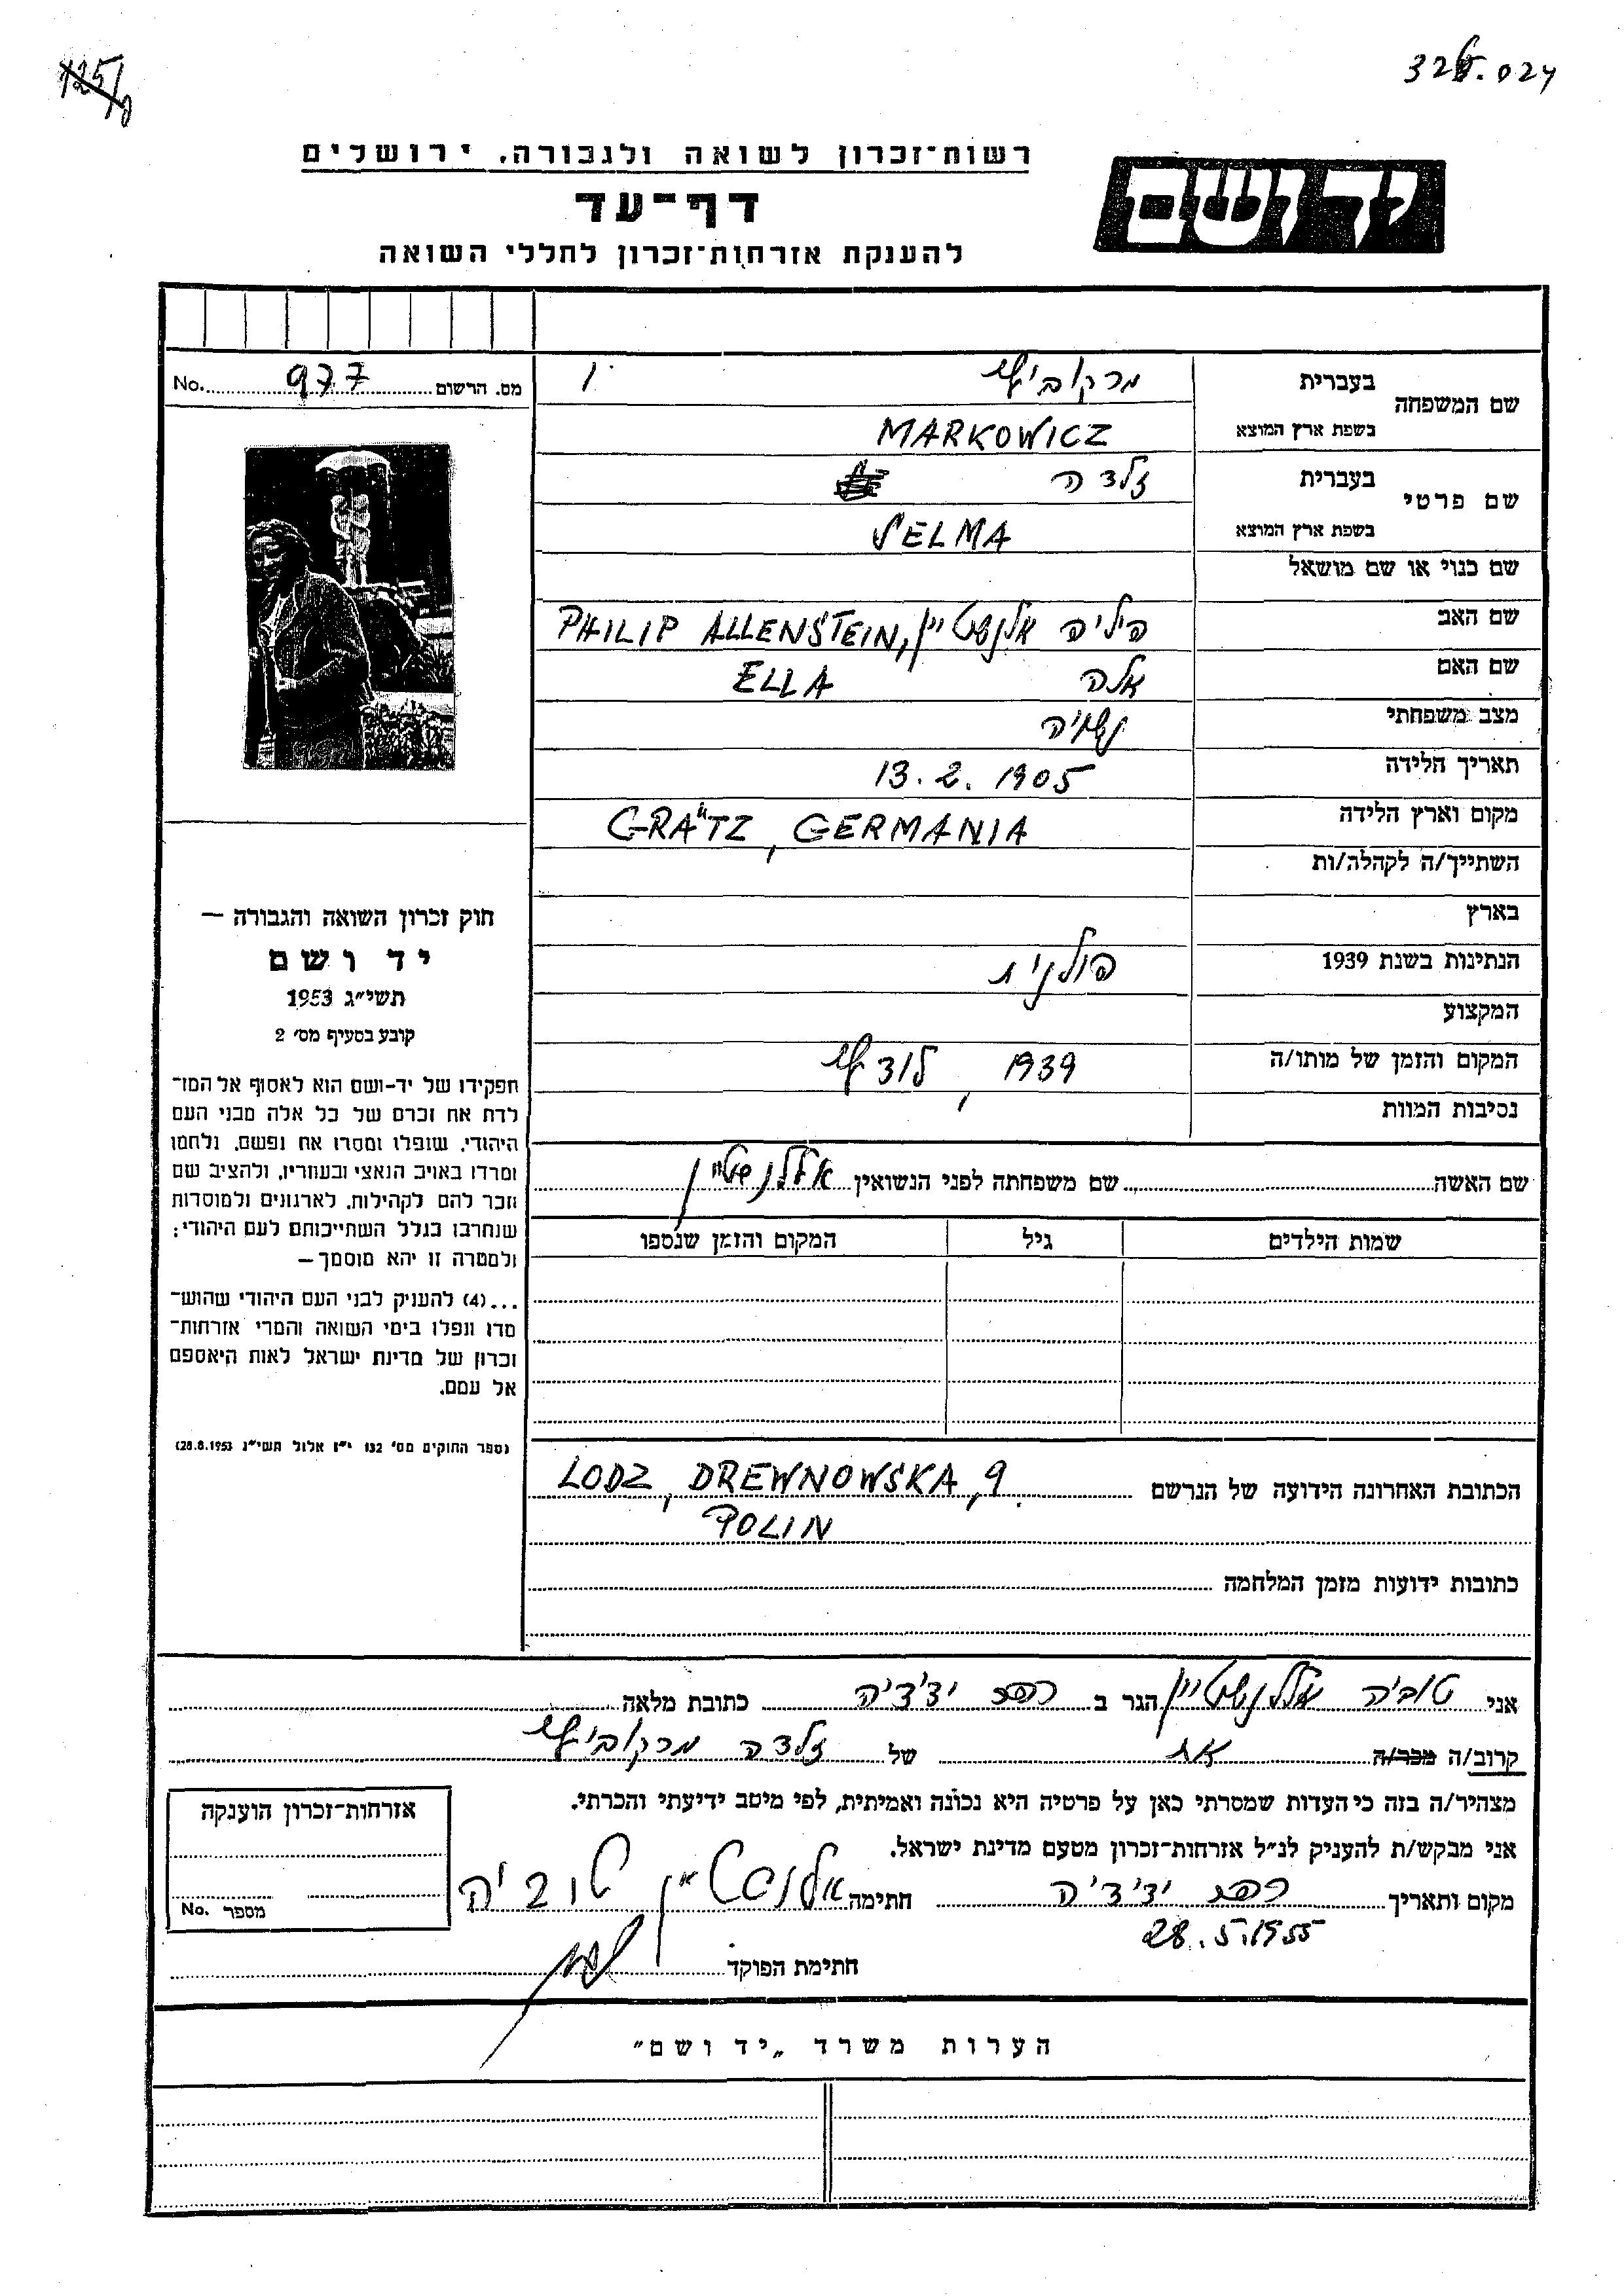 125/8
328.024
יד ושם
רשות־זכרון לשואה ולגבורה, ירושלים
דף־עד
להענקת אזרחות־זכרון לחללי השואה
מס. הרשום 977 No.
שם המשפחה
בעברית מרקוביץ 1
בשפת ארץ המוצא MARKOWICZ
שם פרטי
בעברית זלדה
בשפת ארץ המוצא SELMA
שם כנוי או שם מושאל
שם האב פיליפ אלנשטיין, PHILIP ALLENSTEIN
שם האם אלה ELLA
מצב משפחתי נשואה
תאריך הלידה 13.2.1905
מקום וארץ הלידה GRÄTZ, GERMANIA
השתייך/ה לקהלה/ות
בארץ
הנתינות בשנת 1939 פולנית
המקצוע
המקום והזמן של מותו/ה 1939, לודז'
נסיבות המוות
שם האשה שם משפחתה לפני הנשואין אללנשטיין
שמות הילדים גיל המקום והזמן שנספו
חוק זכרון השואה והגבורה —
יד ושם
תשי״ג 1953
קובע בסעיף מס׳ 2
תפקידו של יד-ושם הוא לאסוף אל המו־
לדת את זכרם של כל אלה מבני העם
היהודי, שנפלו ומסרו את נפשם, נלחמו
ומרדו באויב הנאצי ובעוזריו, ולהציב שם
וזכר להם לקהילות, לארגונים ולמוסדות
שנחרבו בגלל השתייכותם לעם היהודי;
ולמטרה זו יהא מוסמך—
...(4) להעניק לבני העם היהודי שהוש־
מדו ונפלו בימי השואה והמרי אזרחות־
זכרון של מדינת ישראל לאות היאספם
אל עמם.
(ספר החוקים מס׳ 132 י״ז אלול תשי״ג 28.8.1953)
הכתובת האחרונה הידועה של הנרשם LODZ, DREWNOWSKA, 9
POLIN
כתובות ידועות מזמן המלחמה
אני טוביה אללנשטיין הגר ב רמת ידידיה כתובת מלאה
קרוב/ה מכר/ה אח של זלדה מרקוביץ
מצהיר/ה בזה כי העדות שמסרתי כאן על פרטיה היא נכונה ואמיתית, לפי מיטב ידיעתי והכרתי.
אני מבקש/ת להעניק לנ״ל אזרחות־זכרון מטעם מדינת ישראל.
מקום ותאריך חתימה אלנשטיין טוביה
28.5.1955
חתימת הפוקד
אזרחות־זכרון הוענקה
מספר No.
הערות משרד „יד ושם״